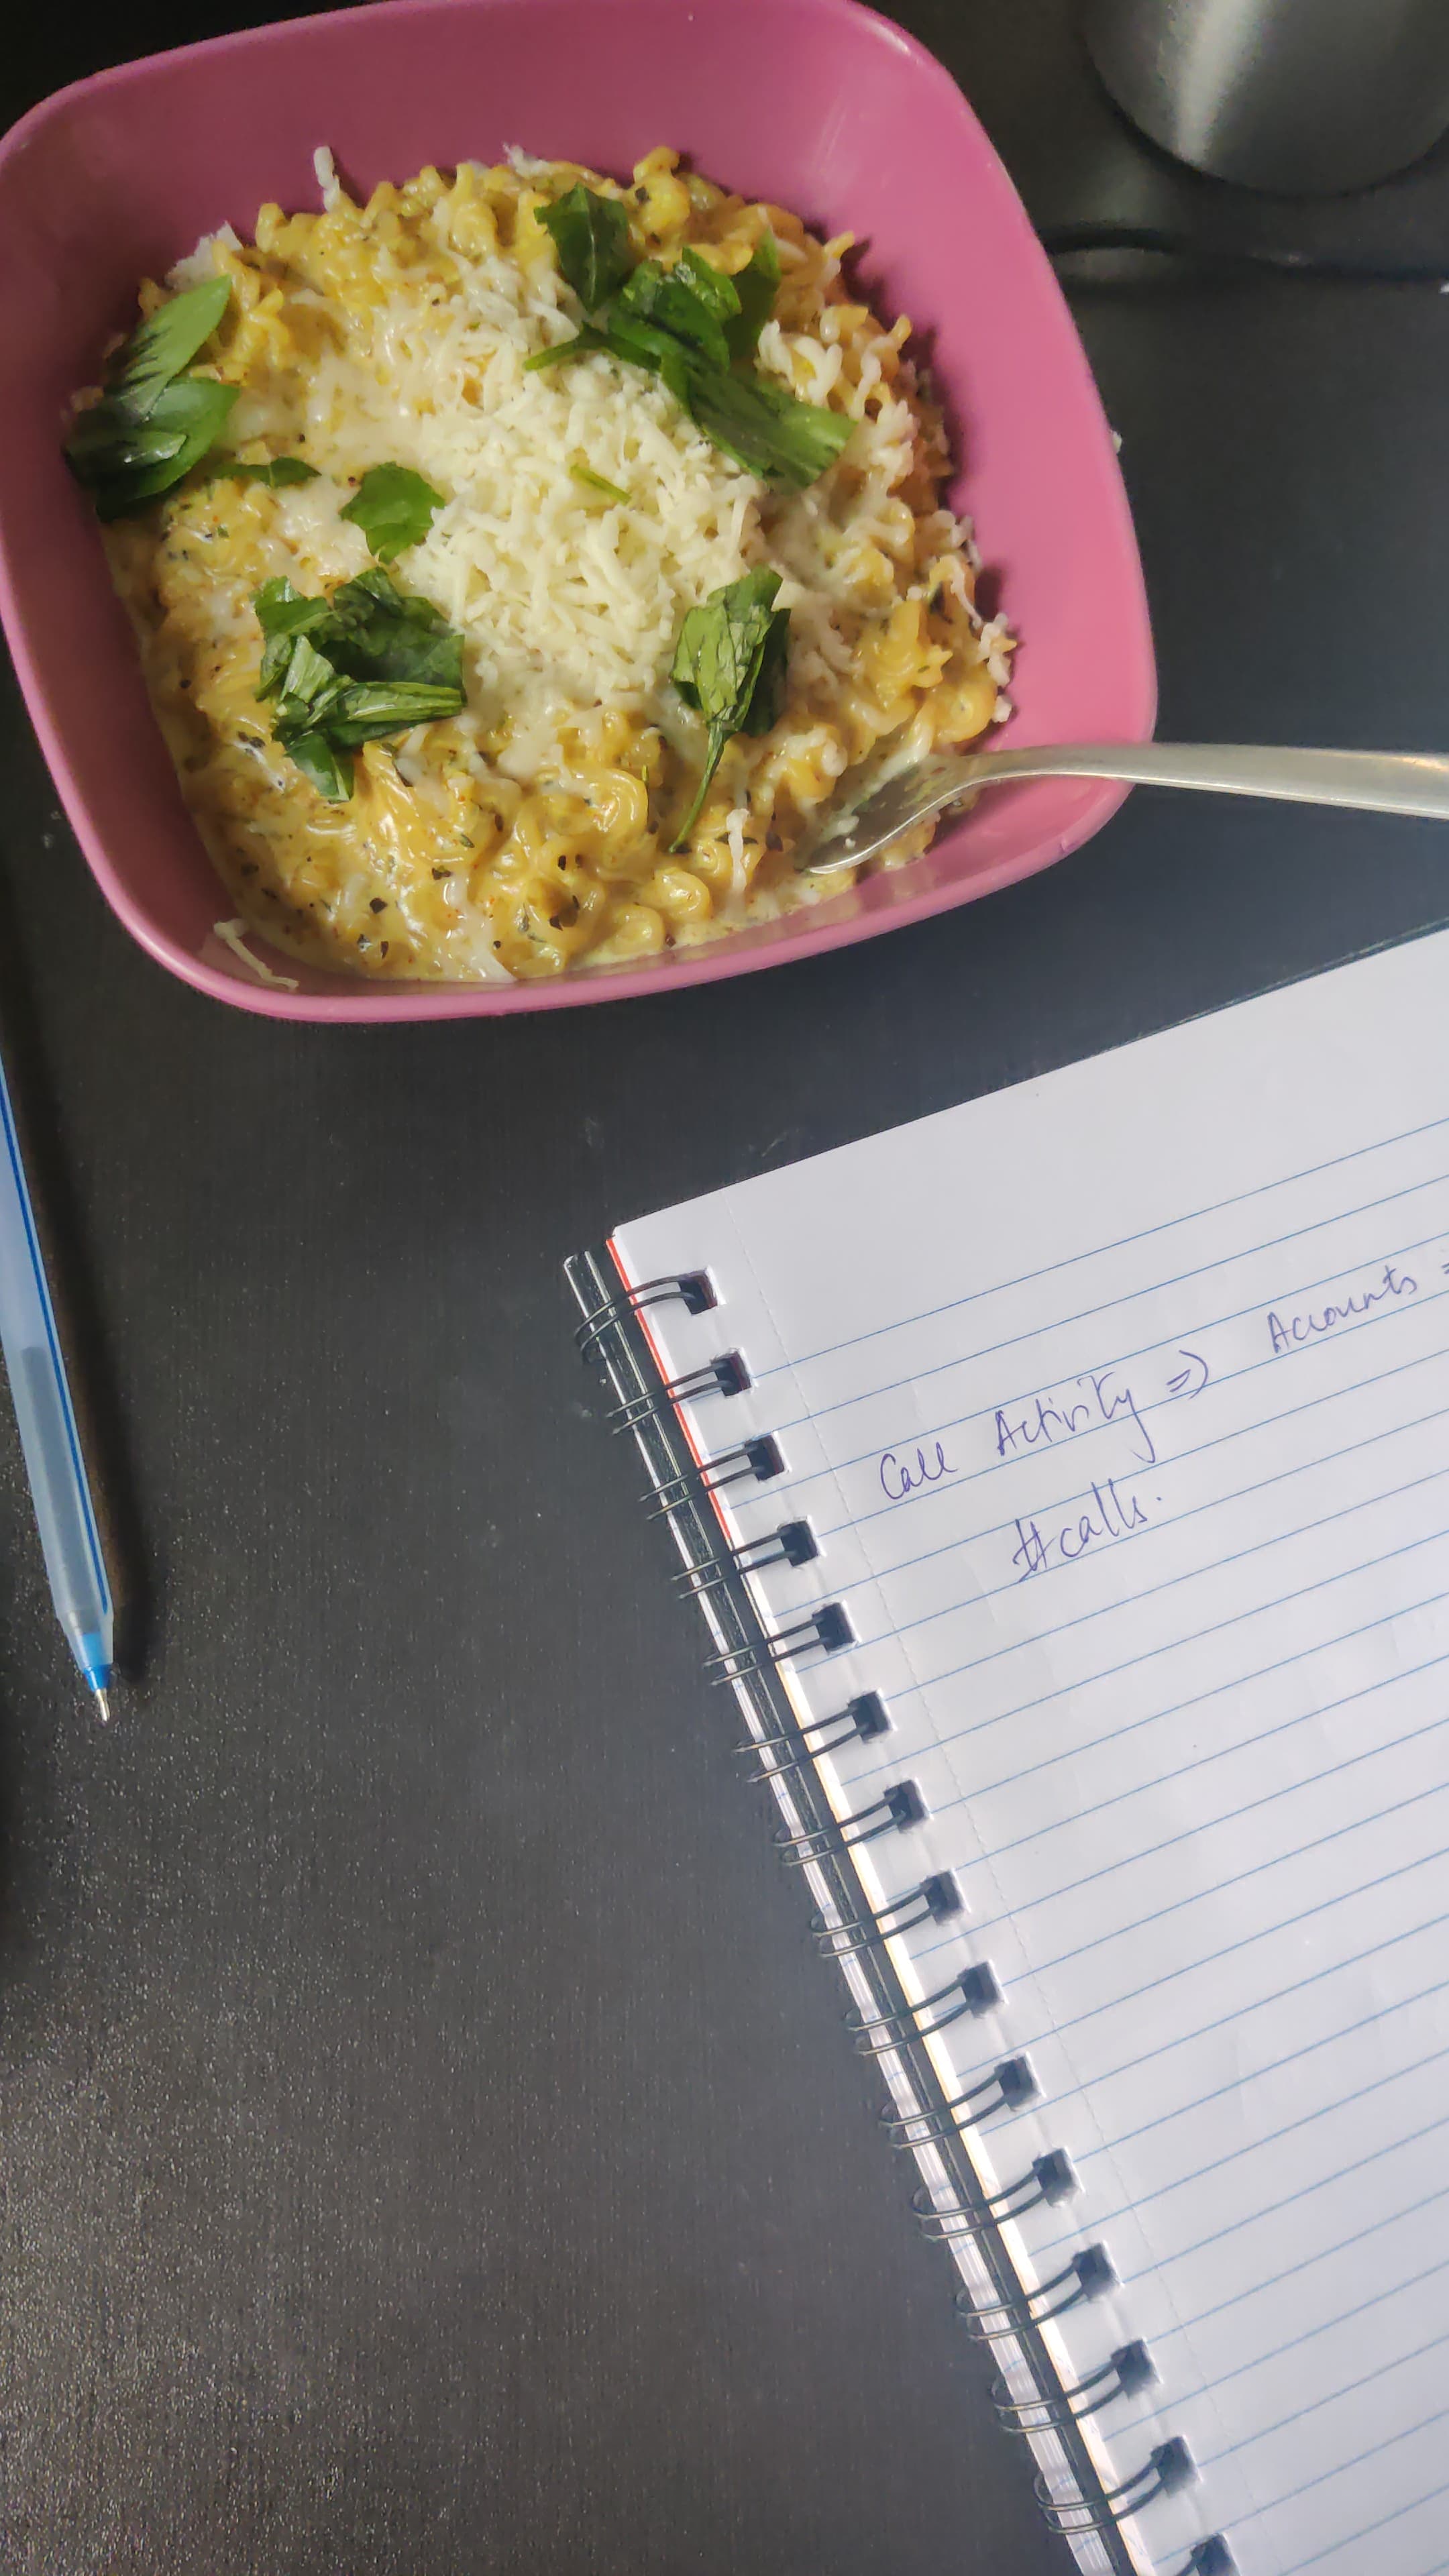 Call Activity => Accounts =
#calls.